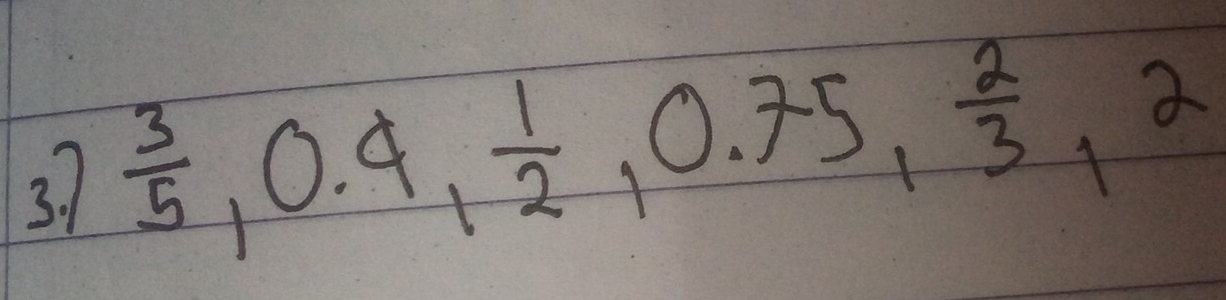 3.) 3/5, 0.4, 1/2, 0.75, 2/3, 2